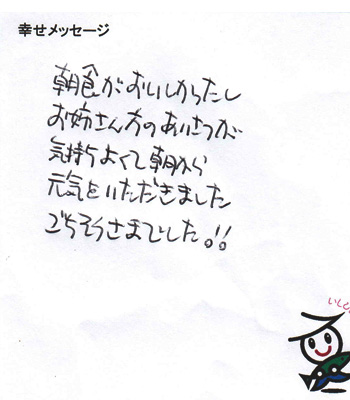 幸せメッセージ
朝食がおいしかったし
お姉さん方のあいさつが
気持ちよくて朝から
元気をいただきました
ごちそうさまでした。!!